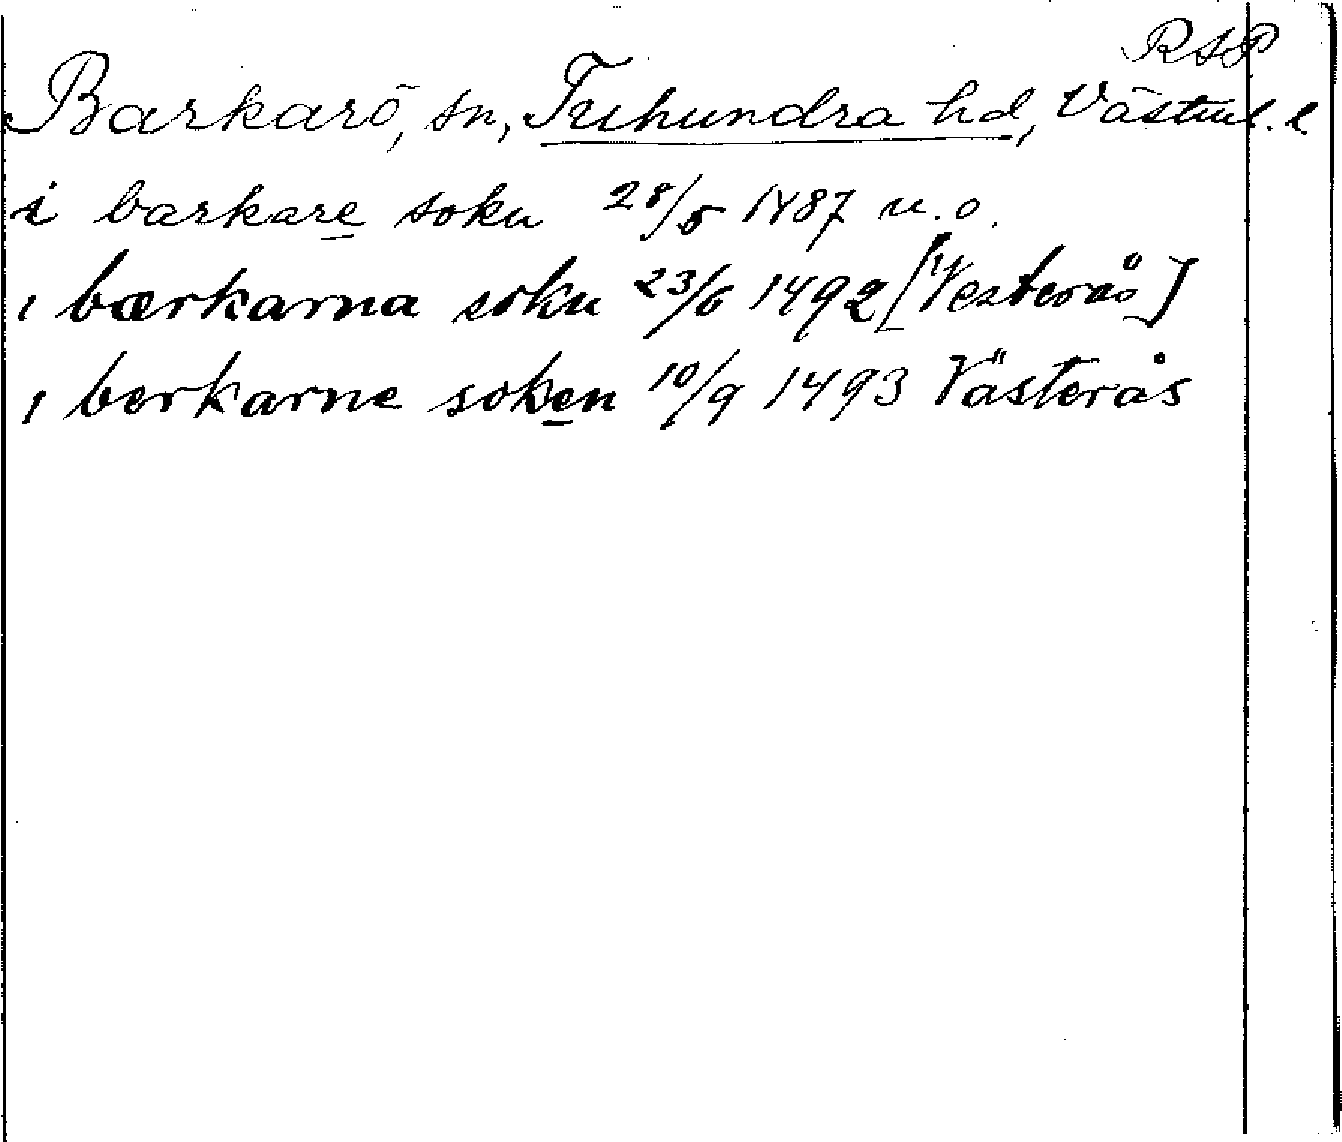 RAP
Barkarö, sn, Tuhundra hd, Västml. l
i barkare sokn 28/5 1487 u.o.
i bærkarna sokn 23/6 1492 [Vesterås]
i berkarne soken 10/9 1493 Västerås